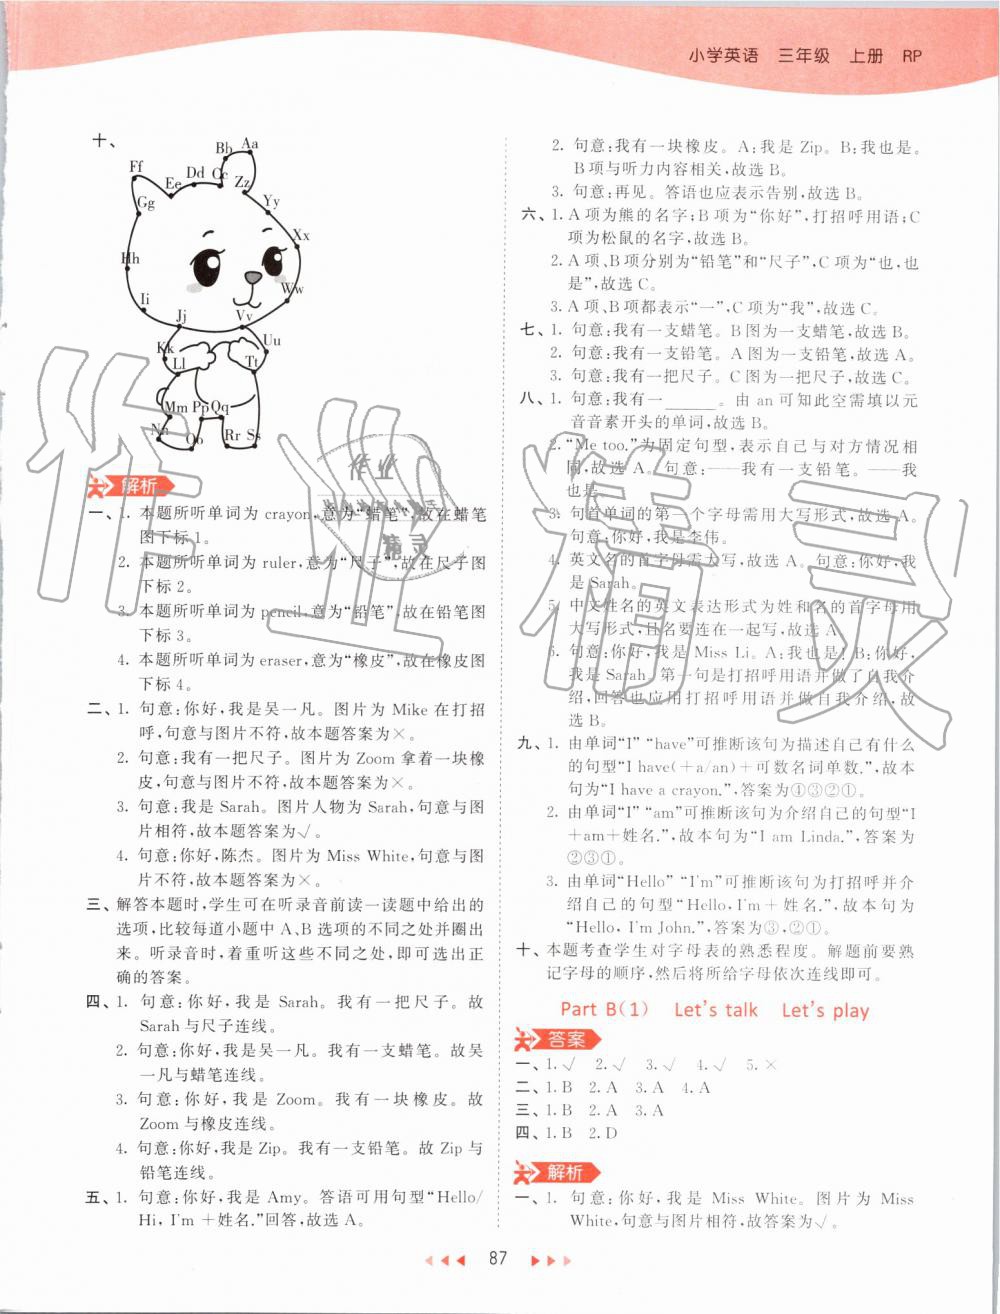 小学英语 三年级 上册 RP
十、
Aa
Bb
Ff
Dd Cc
Ee
Zz
Gg
Yy
Xx
Hh
Ww
Ii
Jj
Vv
Uu
Kk
Ll
Tt
Mm Pp Qq
Nn
Oo
Rr Ss
解析
一、1. 本题所听单词为 crayon,意为“蜡笔”,故在蜡笔
图下标 1。
2. 本题所听单词为 ruler,意为“尺子”,故在尺子图
下标 2。
3. 本题所听单词为 pencil,意为“铅笔”,故在铅笔图
下标 3。
4. 本题所听单词为 eraser,意为“橡皮”,故在橡皮图
下标 4。
二、1. 句意:你好,我是吴一凡。图片为 Mike 在打招
呼,句意与图片不符,故本题答案为×。
2. 句意:我有一把尺子。图片为 Zoom 拿着一块橡
皮,句意与图片不符,故本题答案为×。
3. 句意:我是 Sarah。图片人物为 Sarah,句意与图
片相符,故本题答案为√。
4. 句意:你好,陈杰。图片为 Miss White,句意与图
片不符,故本题答案为×。
三、解答本题时,学生可在听录音前读一读题中给出的
选项,比较每道小题中 A、B 选项的不同之处并圈出
来。听录音时,着重听这些不同之处,即可选出正
确的答案。
四、1. 句意:你好,我是 Sarah。我有一把尺子。故
Sarah 与尺子连线。
2. 句意:你好,我是吴一凡。我有一支蜡笔。故吴
一凡与蜡笔连线。
3. 句意:你好,我是 Zoom。我有一块橡皮。故
Zoom 与橡皮连线。
4. 句意:你好,我是 Zip。我有一支铅笔。故 Zip 与
铅笔连线。
五、1. 句意:你好,我是 Amy。答语可用句型“Hello/
Hi, I'm +姓名.”回答,故选 A。
2. 句意:我有一块橡皮。A:我是 Zip。B:我也是。
B 项与听力内容相关,故选 B。
3. 句意:再见。答语也应表示告别,故选 B。
六、1. A 项为熊的名字;B 项为“你好”,打招呼用语;C
项为松鼠的名字,故选 B。
2. A 项、B 项分别为“铅笔”和“尺子”,C 项为“也,也
是”,故选 C。
3. A 项、B 项都表示“一”,C 项为“我”,故选 C。
七、1. 句意:我有一支蜡笔。B 图为一支蜡笔,故选 B。
2. 句意:我有一支铅笔。A 图为一支铅笔,故选 A。
3. 句意:我有一把尺子。C 图为一把尺子,故选 C。
八、1. 句意:我有一______。由 an 可知此空需填以元
音音素开头的单词,故选 B。
2. “Me too.”为固定句型,表示自己与对方情况相
同,故选 A。句意:——我有一支铅笔。——我
也是。
3. 句首单词的第一个字母需用大写形式,故选 A。
句意:你好,我是李伟。
4. 英文名的首字母需大写,故选 A。句意:你好,我
是 Sarah。
5. 中文姓名的英文表达形式为姓和名的首字母用
大写形式,且名要连在一起写,故选 A。
6. 句意:你好,我是 Miss Li。A:我也是! B:你好,
我是 Sarah。第一句是打招呼用语并做了自我介
绍,回答也应用打招呼用语并做自我介绍,故
选 B。
九、1. 由单词“I”“have”可推断该句为描述自己有什么
的句型“I have(+a/an)+可数名词单数.”,故本
句为“I have a crayon.”,答案为④③②①。
2. 由单词“I”“am”可推断该句为介绍自己的句型“I
+am+姓名.”,故本句为“I am Linda.”,答案为
②③①。
3. 由单词“Hello”“I'm”可推断该句为打招呼并介
绍自己的句型“Hello, I'm + 姓名.”,故本句为
“Hello, I'm John.”,答案为③,②①。
十、本题考查学生对字母表的熟悉程度。解题前要熟
记字母的顺序,然后将所给字母依次连线即可。
Part B(1) Let's talk Let's play
答案
一、1.√ 2.√ 3.√ 4.√ 5.×
二、1.B 2.A 3.A 4.A
三、1.B 2.A 3.A
四、1.B 2.D
解析
一、1. 句意:你好,我是 Miss White。图片为 Miss
White,句意与图片相符,故答案为√。
87
作业精灵
作业
精灵